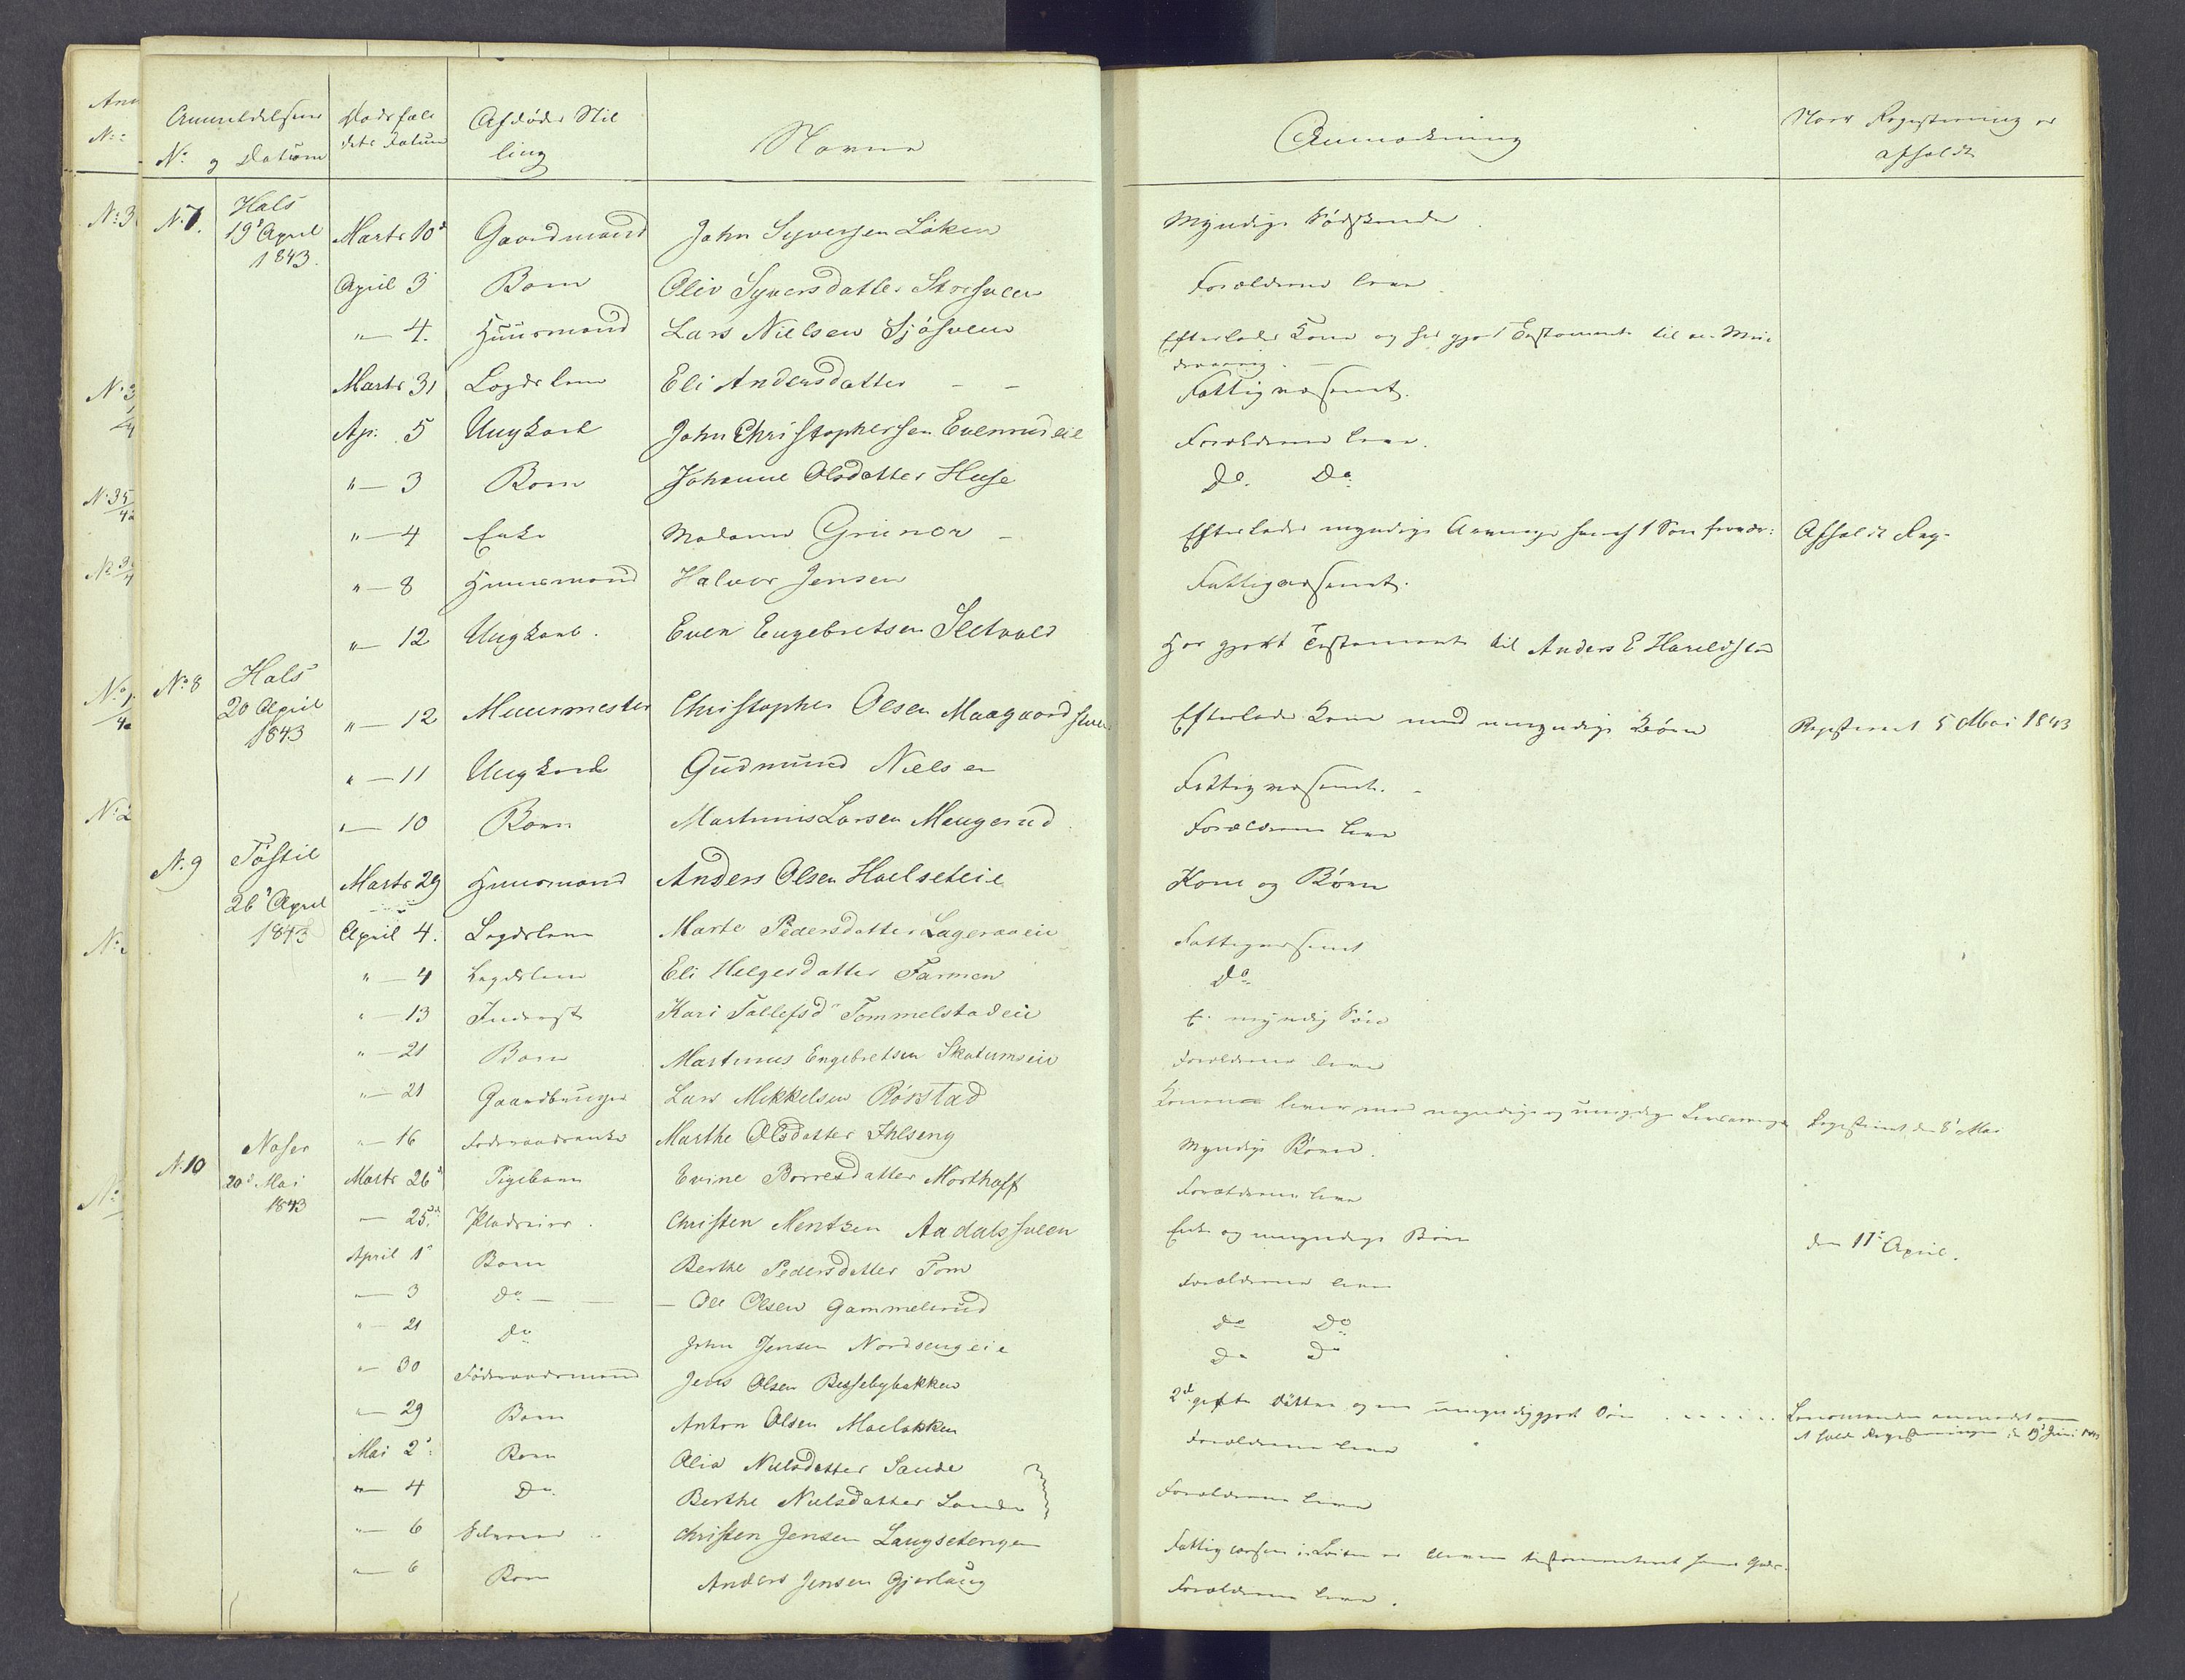 Anmeldelsens Dødsfal- Afdødes Stil- Navne Anmærkning Naar Registrering er
No og Datum dets Datum ling afholdt
No 7. Hals 19d April 1843. Marts 10d Gaardmand John Syversen Løken Myndige Sødskende
April 3 Barn Oliv Syversdatter Storsveen Forældrene leve
" 4. Huusmand Lars Nielsen Sjøsveen Efterlader Kone og har gjort Testament til en
Marts 31 Lægdslem Eli Andersdatter - - Fattigvæsenet.
Ap. 5 Ungkarl John Christophersen Evenrudeie Forældrene leve.
" 3 Barn Johanne Olsdatter Huse Do. Do.
" 4 Enke Madame Grüner - Efterlader myndige Arvinge 1 Søn Afholdt Reg.
" 8 Huusmand Halvor Jensen Fattigvæsenet.
" 12 Ungkarl. Even Engebretsen Sletvold Har gjort Testament til Anders E Harildstad
No 8 Hals 20 April 1843 " 12 Muurmester Christopher Olsen Maagaardsveen Efterlader Kone med umyndige Børn Registreret 5 Mai 1843
" 11 Ungkarl Gudmund Nielsen Fattigvæsenet. -
" 10 Barn Martinus Larsen Mengerud Forældrene leve
No 9 Tøftil 26d April 1843 Marts 29 Huusmand Anders Olsen Hoelseteie Kone og Børn
April 4. Lægdslem Marte Pedersdatter Lageraaeie Fattigvæsenet
" 4 Lægdslem Eli Helgesdatter Farmen Do
" 13 Inderst Kari Tollefsdr Tommelstadeie E. myndig Søn
" 21 Barn Martinus Engebretsen Skutumseie Forældrene leve
" 21 Gaardbruger Lars Mikkelsen Rørstad Konen lever med myndige og umyndige Livsarvinge Registreret den 8d Mai
" 16 Foderaadsenke Marthe Olsdatter Ihlseng Myndige Børn.
No 10 Næser 20d Mai 1843 Marts 26d Pigebarn Evine Borresdatter Morthoff Forældrene leve
" 25d. Pladseier. Christen Mentzen Aadalssveen Enke og umyndige Børn den 11d April.
April 1d Barn Berthe Pedersdatter Tom Forældrene leve
" 3 Do - - - Ole Olsen Gammelerud Do Do
" 21 Do John Jensen Nordsengeie Do Do
" 30 Føderaadsmand Jens Olsen Bessebybakken 2de gifte Døttre og en umyndiggjort Søn . . . . . Lensmanden anmodet om
at holde Registreringen 19d Juni 1843
" 29 Barn Anton Olsen Moeløkken Forældrene leve
Mai 2d: Barn Olia Nielsdatter Sande
" 4 Do. Berthe Nielsdatter Sande Forældrene leve
" 6 Christen Jensen Langsetengen Fattigvæsen i Løiten er testamenteret
" 6 Barn Anders Jensen Gjerlaug Forældrene leve.